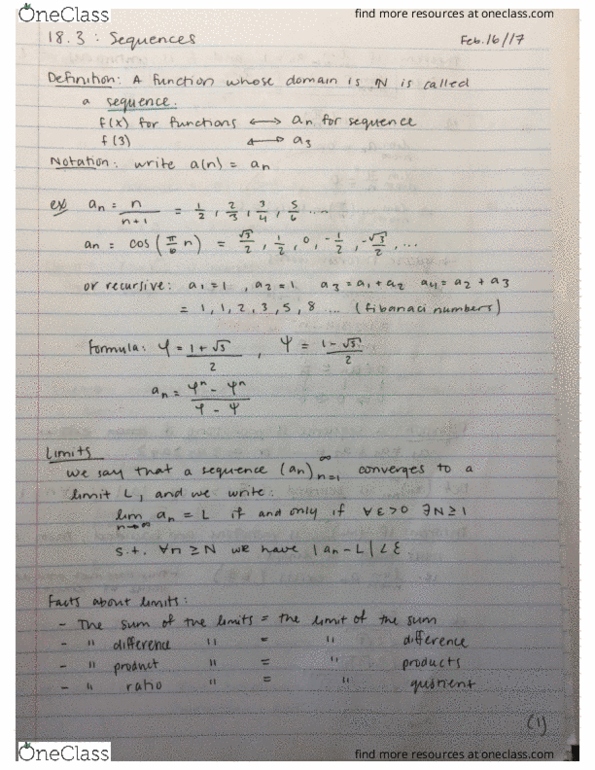 OneClass
find more resources at oneclass.com
18.3 : Sequences Feb.16/17
Definition: A function whose domain is ℕ is called
a sequence.
f(x) for functions ⟷ an for sequence
f(3) ⟷ a3
Notation: write a(n) = an
ex) an = n/(n+1) = 1/2, 2/3, 3/4, 5/6 ....
an = cos(π/6 n) = √3/2, 1/2, 0, -1/2, -√3/2, ...
or recursive: a1 = 1, a2 = 1 a3 = a1 + a2 a4 = a2 + a3
= 1, 1, 2, 3, 5, 8 .... (fibanaci numbers)
formula: φ = (1 + √5)/2 , ψ = (1 - √5)/2
an = (φ^n - ψ^n)/(φ - ψ)
Limits
we say that a sequence (an)∞n=1 converges to a
limit L, and we write:
lim n→∞ an = L if and only if ∀ε>0 ∃N≥1
s.t. ∀n ≥ N we have |an - L| < ε
Facts about limits:
- The sum of the limits = the limit of the sum
- " difference " = " difference
- " product " = " products
- " ratio " = " quotient
(1)
OneClass
find more resources at oneclass.com